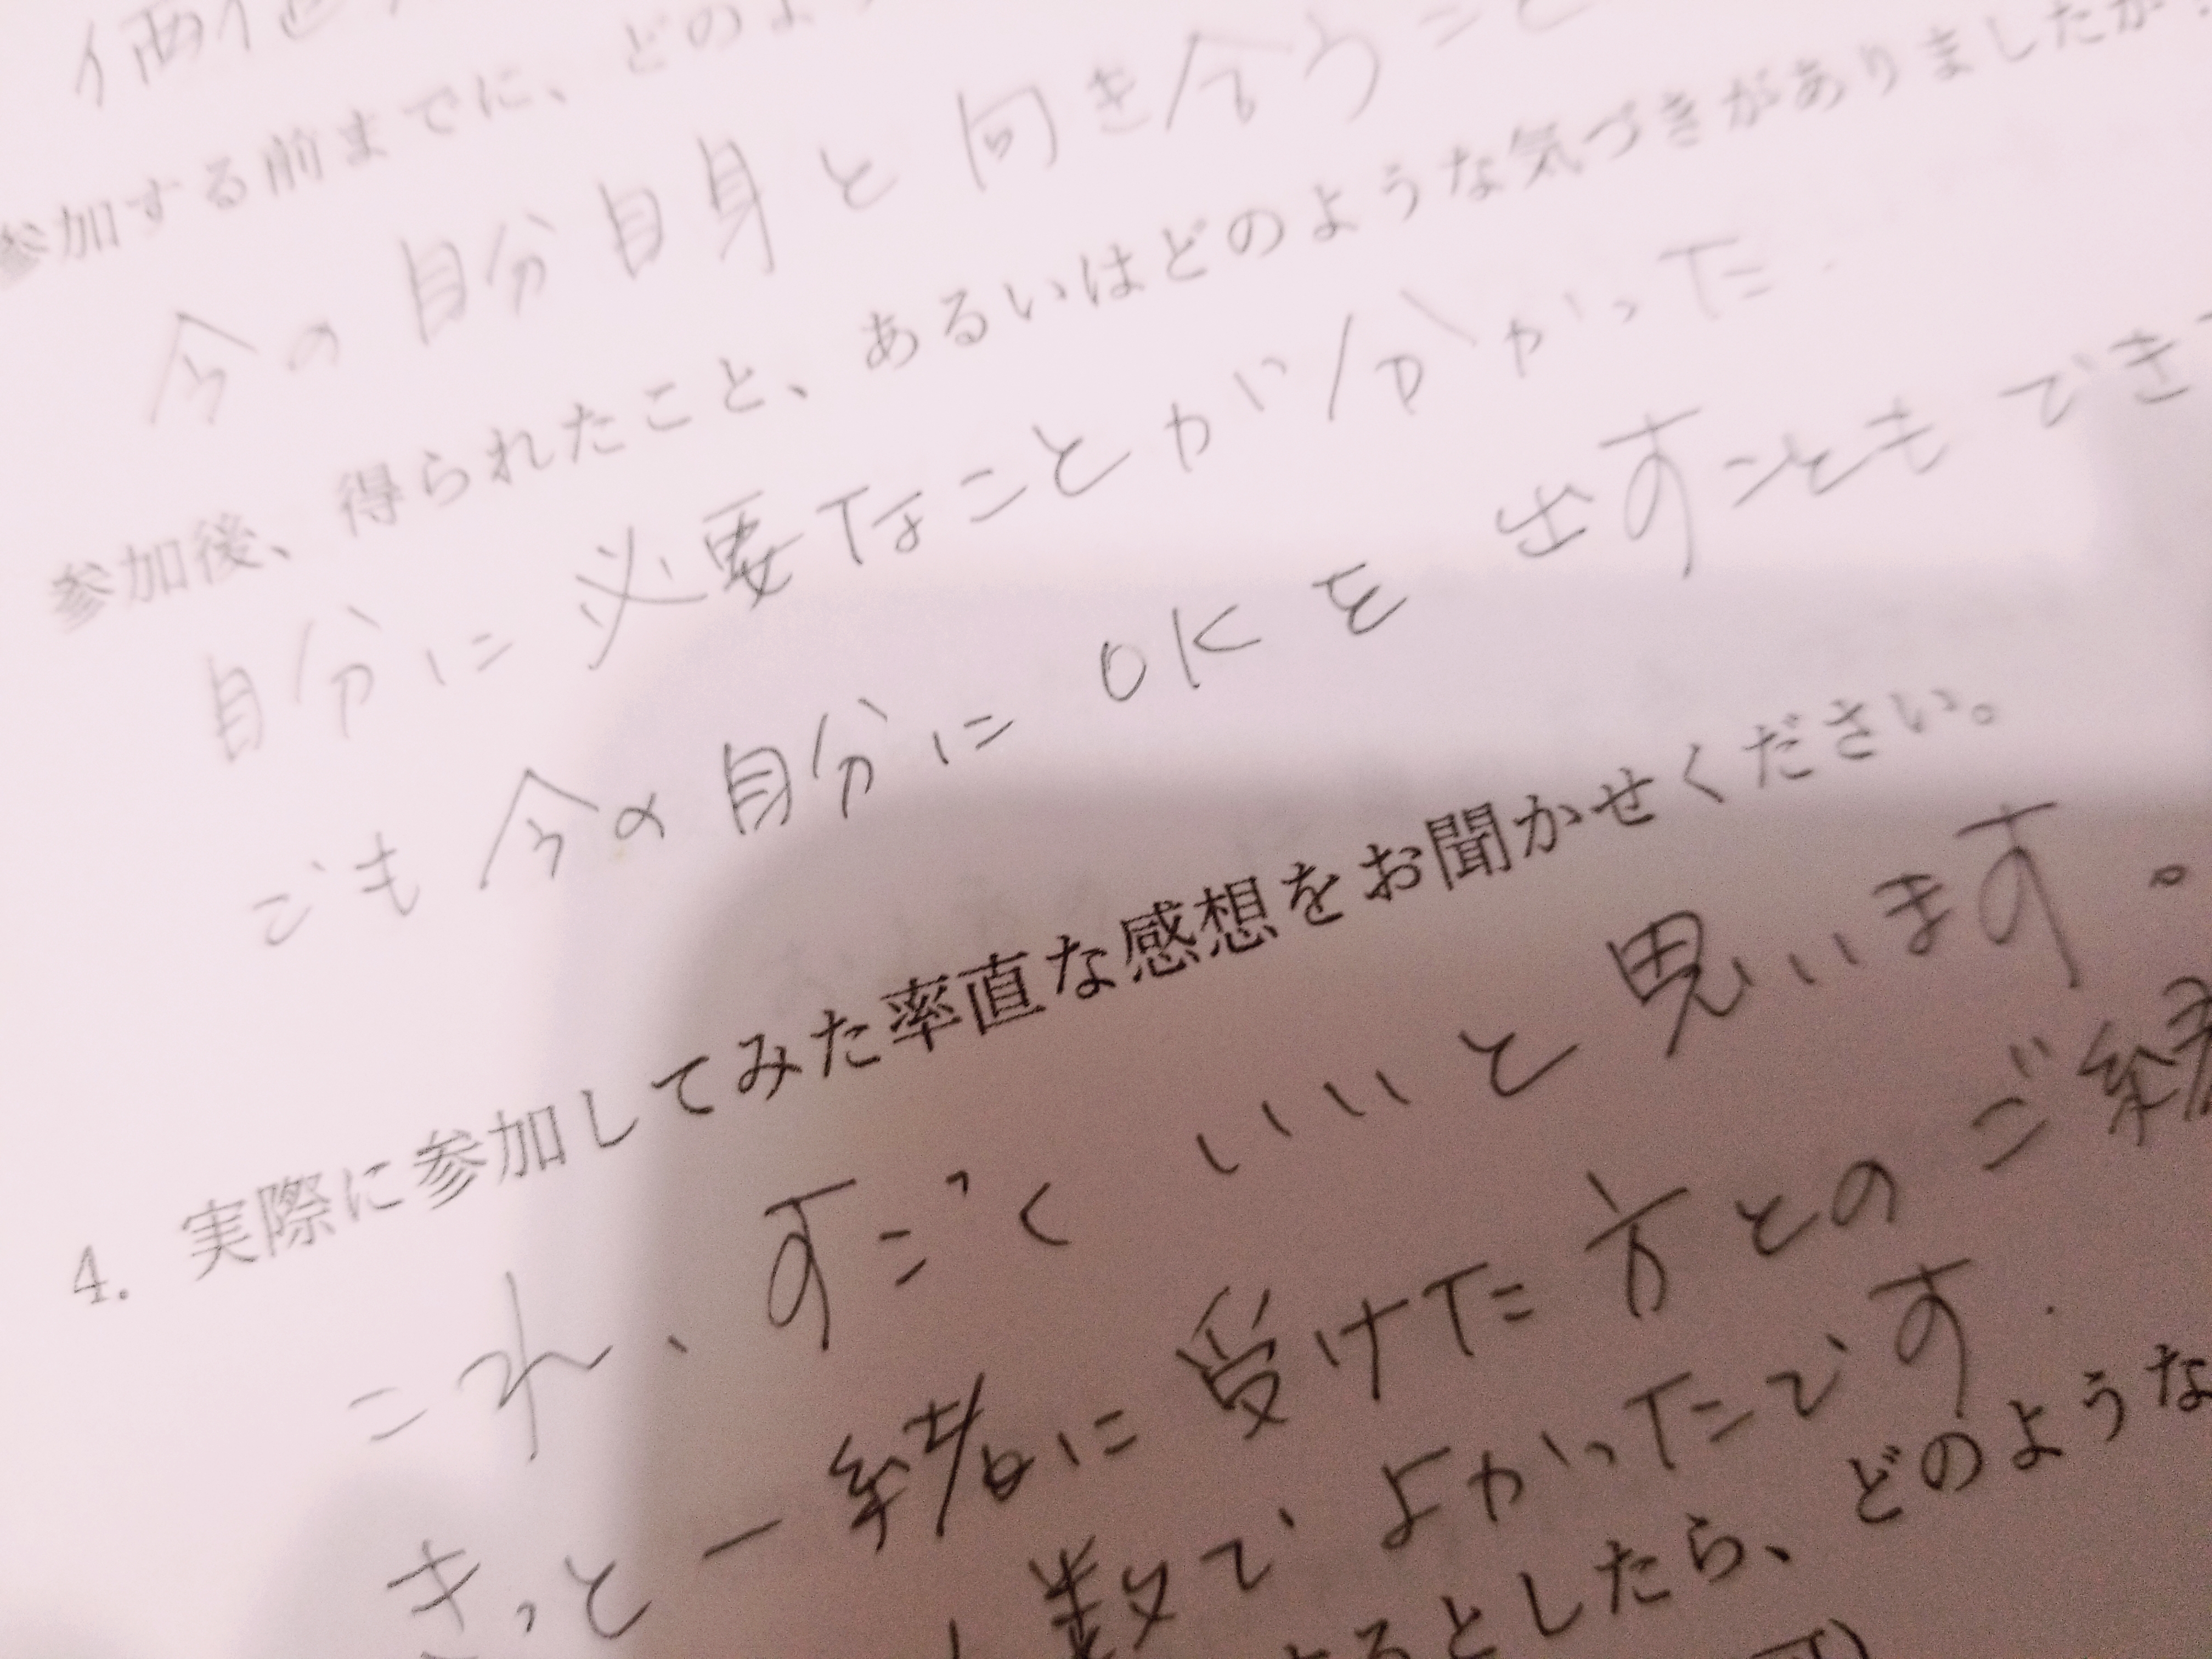 価値
参加する前までに、どのよ
今の自分自身と向き合うこと
参加後、得られたこと、あるいはどのような気づきがありましたか?
自分に必要なことが分かった.
でも今の自分にOKを出すこともでき
4. 実際に参加してみた率直な感想をお聞かせください。
これ、すごくいいと思います。
きっと一緒に受けた方とのご縁
数でよかったです.
るとしたら、どのような